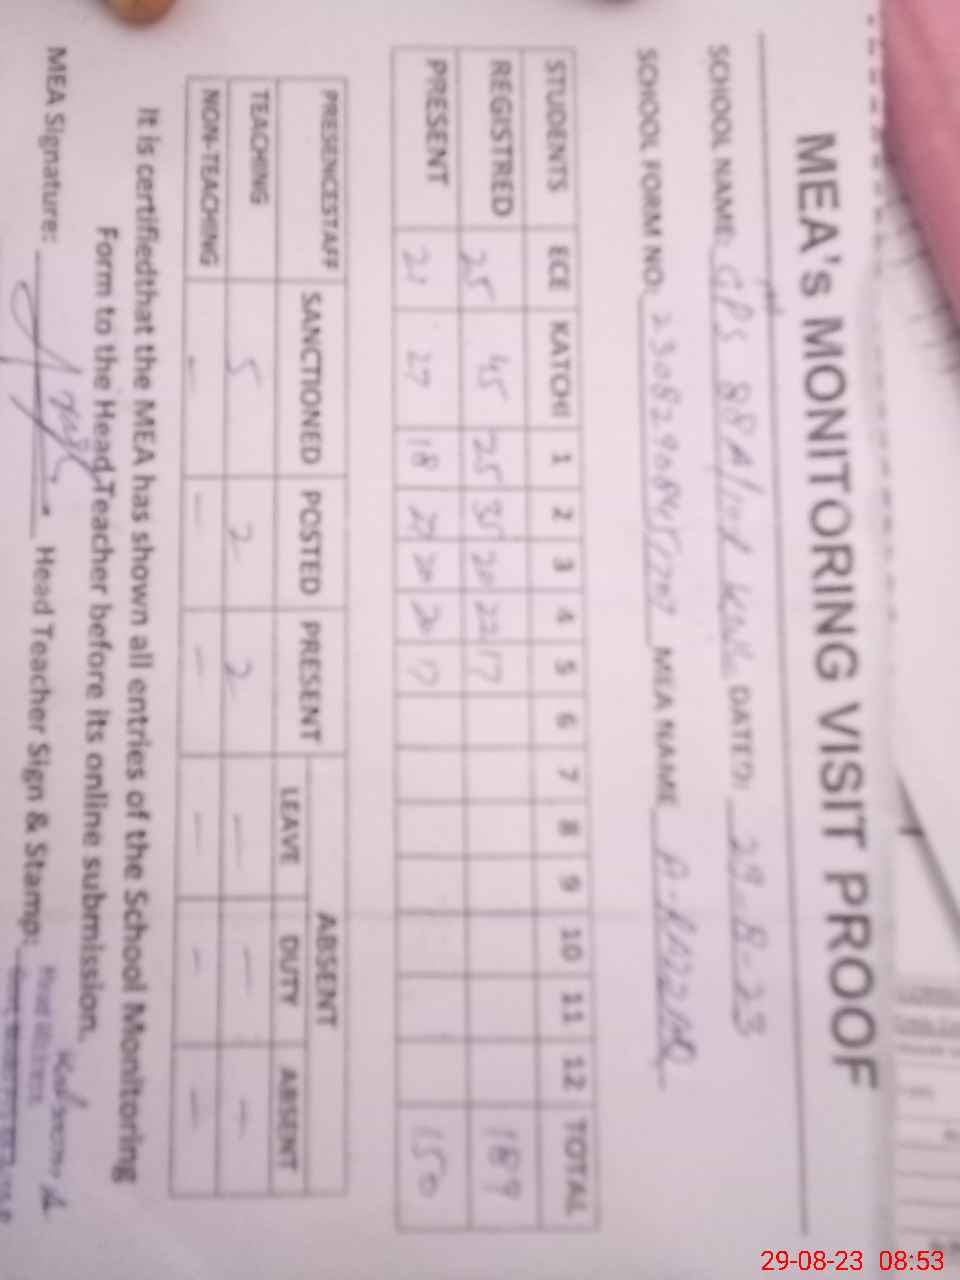 MEA's MONITORING VISIT PROOF
SCHOOL NAME: GPS 88A/ DATED: 29-8-23
SCHOOL FORM NO: MEA NAME
STUDENTS ECE KATCHI 1 2 3 4 5 6 7 8 9 10 11 12 TOTAL
REGISTRED 25 45 25 35 20 22 17 189
PRESENT 21 27 18 27 20 20 17 150
PRESENCESTAFF SANCTIONED POSTED PRESENT ABSENT
LEAVE DUTY ABSENT
TEACHING 5 2 2 — — —
NON-TEACHING — — — — — —
It is certifiedthat the MEA has shown all entries of the School Monitoring
Form to the Head Teacher before its online submission.
MEA Signature: Head Teacher Sign & Stamp:
29-08-23 08:53